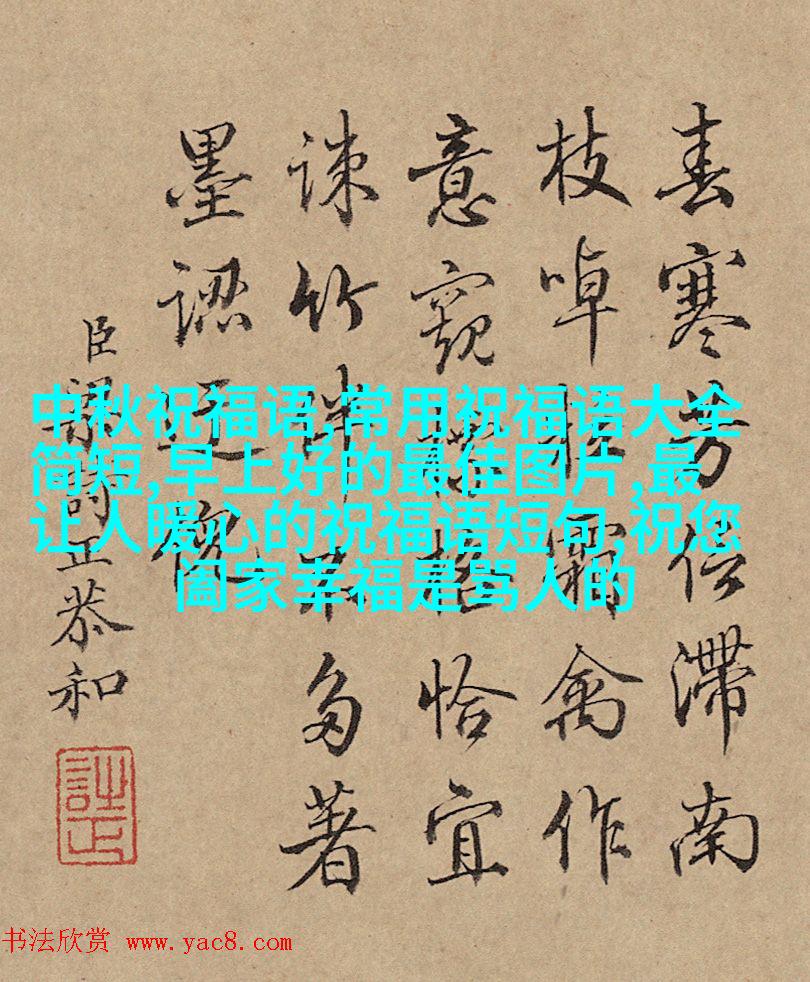 春寒芳信滯南
枝啅霜禽作
意窺恰宜
疎竹伴不多著
墨認返魂
臣梁詩正恭和
中秋祝福语,常用祝福语大全
简短,早上好的最佳图片,最
让人暖心的祝福语短句,祝您
阖家幸福是骂人的
书法欣赏 www.yac8.com